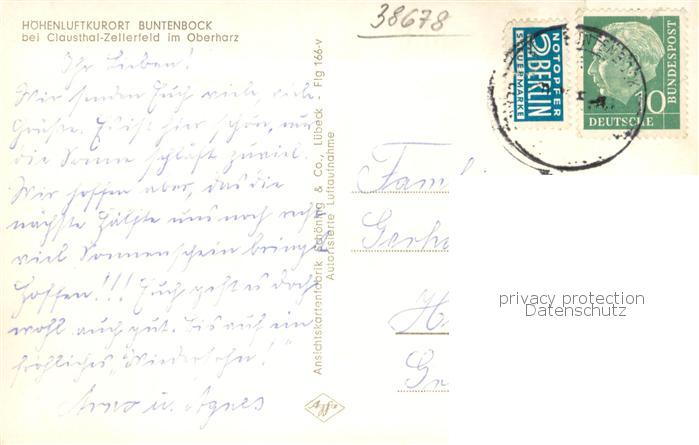 HÖHENLUFTKURORT BUNTENBOCK
bei Clausthal-Zellerfeld im Oberharz
38678
Ihr Lieben!
Wir senden Euch viele, viele
Grüße. Es ist hier schön, nur
die Sonne schläft zuviel.
Wir hoffen aber, das die
nächste Hälfte uns noch recht
viel Sonnenschein bringt
Hoffen!!! Euch geht es doch
wohl auch gut. Bis auf ein
fröhliches "Wiedersehn!"
Arno u. Agnes
Ansichtskartenfabrik Schöning & Co., Lübeck - Flg 166-v
Autorisierte Luftaufnahme
Agfa
NOTOPFER
2 BERLIN
STEUERMARKE
10
DEUTSCHE
BUNDESPOST
Fam
Gerh
H
Ge
privacy protection
Datenschutz